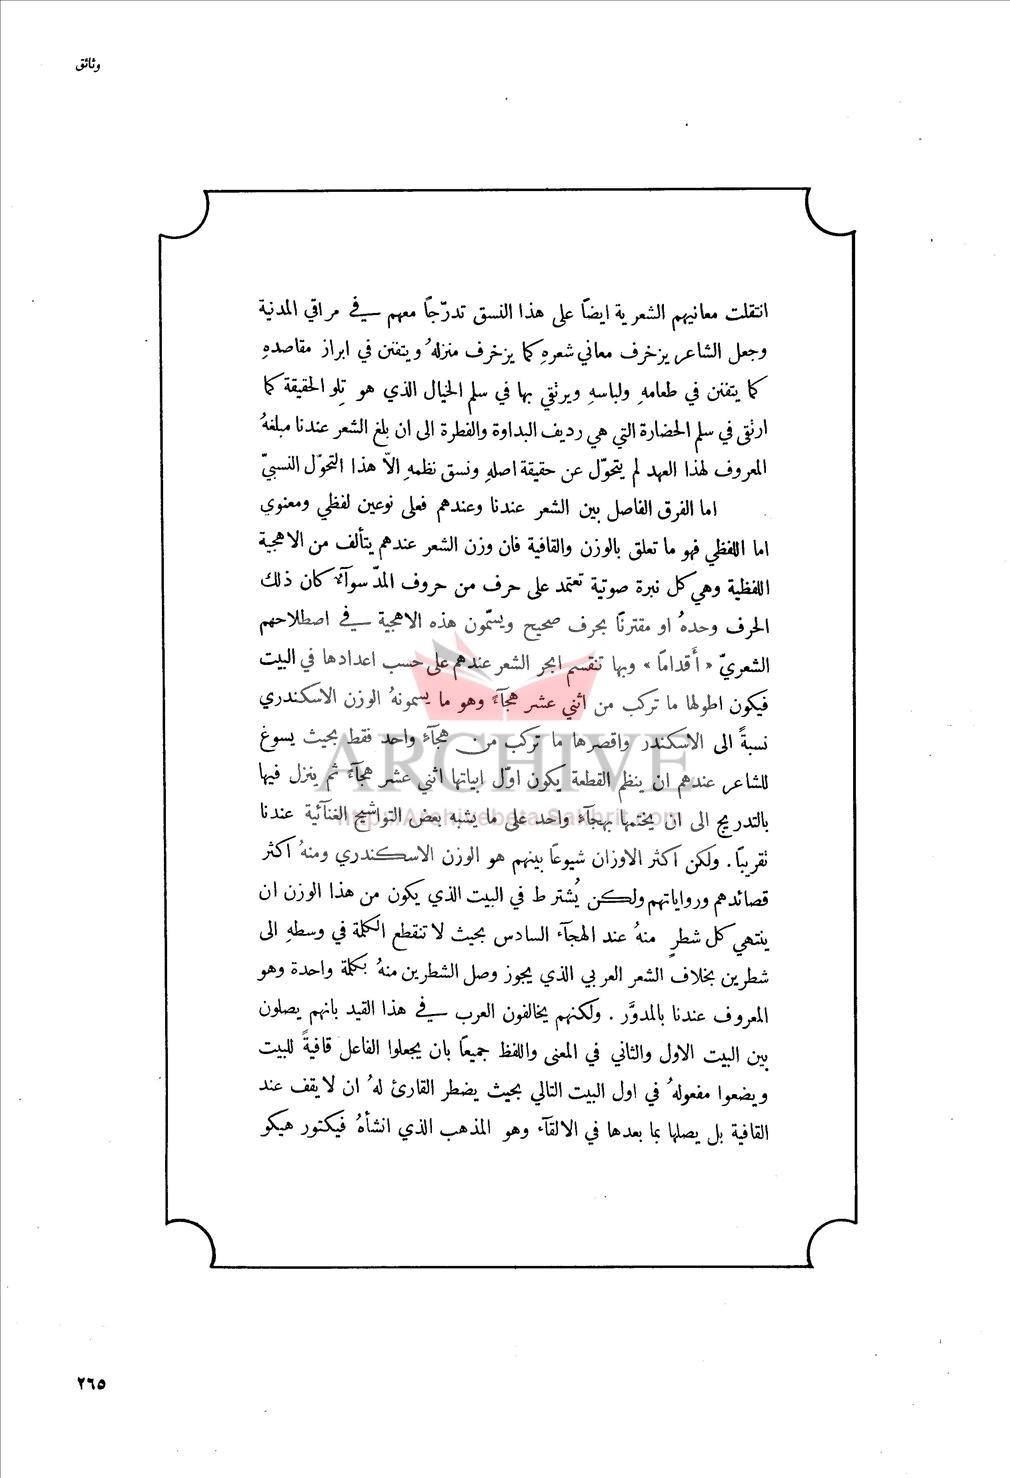 وثائق
انتقلت معانيهم الشعرية ايضاً على هذا النسق تدرّجاً معهم في مراقي المدنية
وجعل الشاعر يزخرف معاني شعرهِ كما يزخرف منزلهُ ويتفنن في ابراز مقاصدهِ
كما يتفنن في طعامهِ ولباسهِ ويرتقي بها في سلم الخيال الذي هو تِلو الحقيقة كما
ارتقى في سلم الحضارة التي هي رديف البداوة والفطرة الى ان بلغ الشعر عندنا مبلغهُ
المعروف لهذا العهد لم يتحوّل عن حقيقة اصلهِ ونسق نظمهِ الاّ هذا التحوّل النسبيّ
اما الفرق الفاصل بين الشعر عندنا وعندهم فعلى نوعين لفظي ومعنوي
اما اللفظي فهو ما تعلق بالوزن والقافية فان وزن الشعر عندهم يتألف من الاهجية
اللفظية وهي كل نبرة صوتية تعتمد على حرف من حروف المدّ سوآءٌ كان ذلك
الحرف وحدهُ او مقترناً بحرف صحيح ويسمّون هذه الاهجية في اصطلاحهم
الشعريّ « أَقداماً » وبها تنقسم ابحر الشعر عندهم على حسب اعدادها في البيت
فيكون اطولها ما تركب من اثني عشر هجآءً وهو ما يسمونهُ الوزن الاسكندري
نسبةً الى الاسكندر واقصرها ما تركب من هجآءٍ واحد فقط بحيث يسوغ
للشاعر عندهم ان ينظم القطعة يكون اوّل ابياتها اثني عشر هجآءً ثم ينزل فيها
بالتدريج الى ان يختمها بهجآءٍ واحد على ما يشبه بعض التواشيح الغنآئية عندنا
تقريباً . ولكن اكثر الاوزان شيوعاً بينهم هو الوزن الاسكندري ومنهُ اكثر
قصائدهم ورواياتهم ولكن يُشترط في البيت الذي يكون من هذا الوزن ان
ينتهي كل شطرٍ منهُ عند الهجآء السادس بحيث لا تنقطع الكلمة في وسطهِ الى
شطرين بخلاف الشعر العربي الذي يجوز وصل الشطرين منهُ بكلمة واحدة وهو
المعروف عندنا بالمدوَّر . ولكنهم يخالفون العرب في هذا القيد بانهم يصلون
بين البيت الاول والثاني في المعنى واللفظ جميعاً بان يجعلوا الفاعل قافيةً للبيت
ويضعوا مفعولهُ في اول البيت التالي بحيث يضطر القارئ لهُ ان لا يقف عند
القافية بل يصلها بما بعدها في الالقآء وهو المذهب الذي انشأهُ فيكتور هيكو
ARCHIVE
http://Archivebeta.Sakhrit.com
٢٦٥